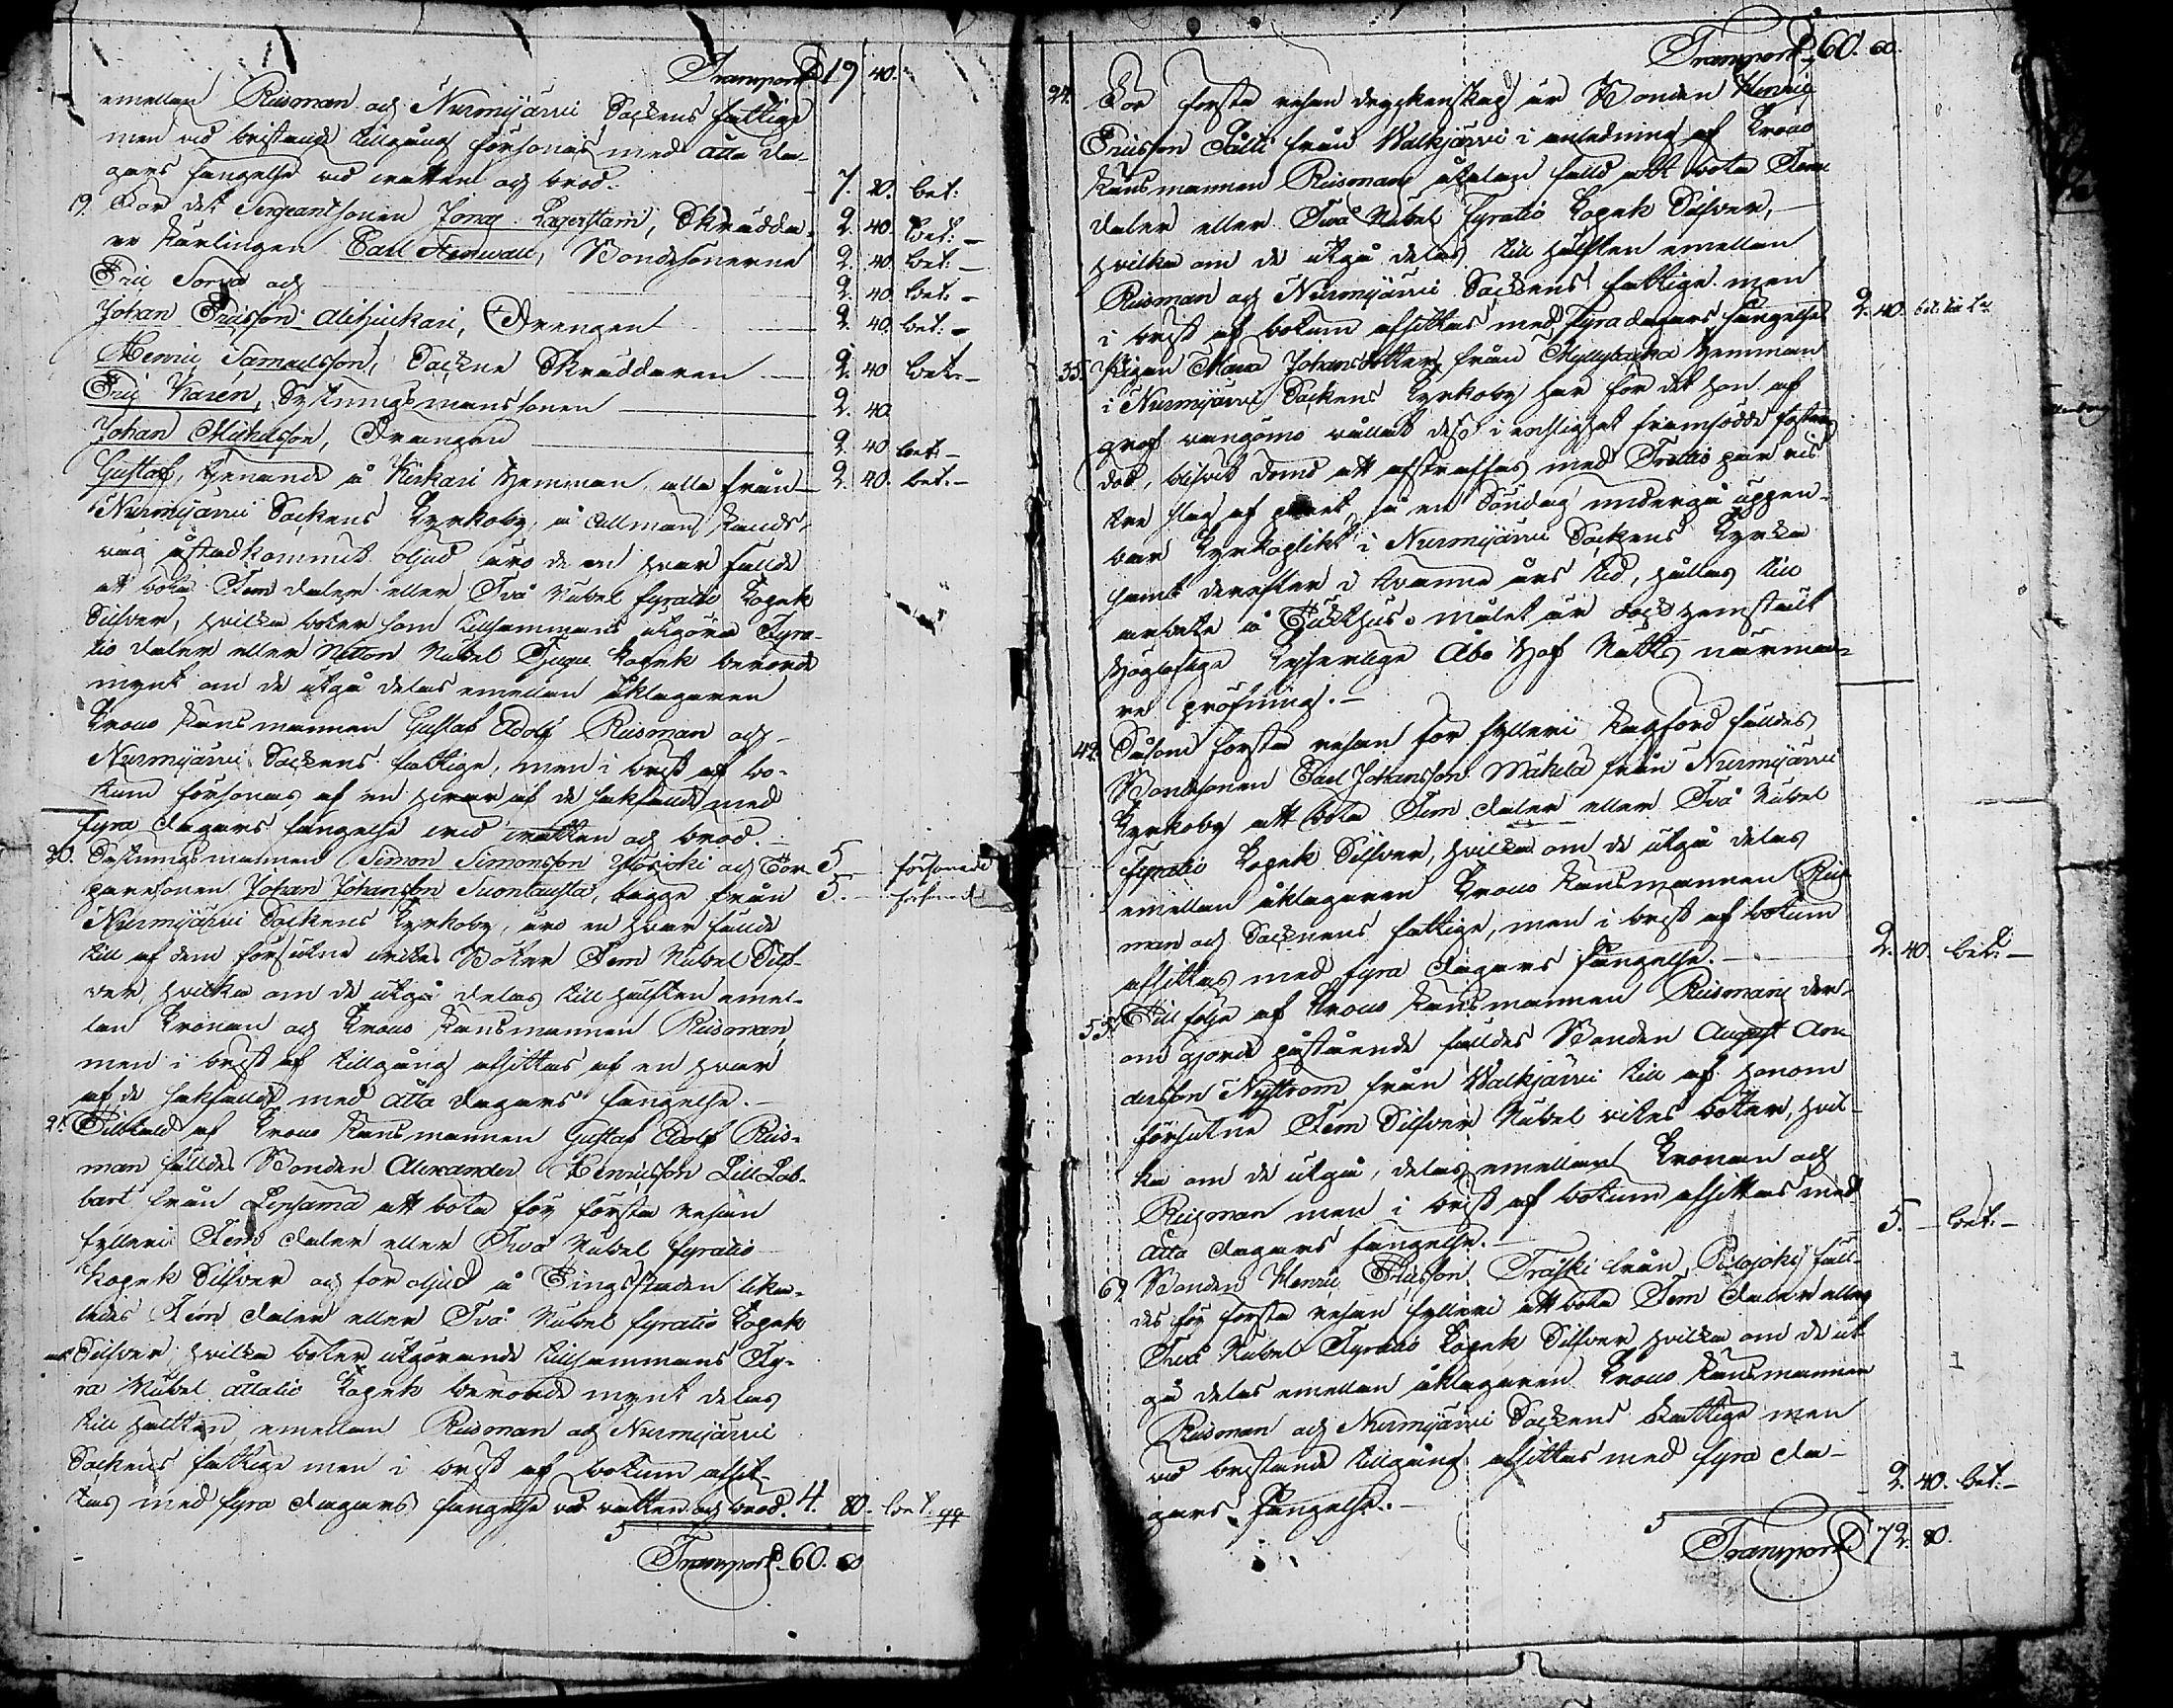 Transport 19 40.
emellan Riisman och Nurmijärvi Sockens fattige
men vid bristande tillgång försonas med åtta da-
gars fängelse vid vatten och bröd. - 7. 20. bet:
19. För det Sergeantsonen Jonas Lagerstam, Skrädda- 2. 40. bet: -
re Lärlingen Carl Stenwall, Bondesonerne 2. 40. bet: -
Eric Sorva och 2. 40. bet: -
Johan Ericsson Alitjuikari, Drengen 2. 40. bet: -
Henric Samuelsson, Sockne Skräddaren 2. 40 bet: -
Eric Karén, Sexmanssonen 2. 40.
Johan Michelsson, Drängen 2. 40 bet: -
Gustaf, tjenande å Kirkari Hemman, alla från 2. 40. bet. -
Nurmijärvi Sockens Kyrkoby, å allmän Lands-
väg åstadkommit oljud äro de en hvar fällde
att böta Fem daler eller Två Rubel fyratio Kopek
Silfver, hvilka böter som tillsammans utgöra Fyra-
tio daler eller Nitton Rubel Tjugu Kopek berörde
mynt om de utgå delas emellan åklagaren
Krono Länsmannen Gustaf Adolf Riisman och
Nurmijärvi Sockens fattige, men i brist af bö-
tum försonas af en hvar af de sakfällde med
fyra dagars fängelse vid vatten och bröd. -
20. mannen Simon Simonsson Ylöjoki och Tor- 5 - försonade
paresonen Johan Johansson Suontausta, begge från 5. - försonade
Nurmijärvi Sockens Kyrkoby, äro en hvar fällde
till af dem försutne vites Böter Fem Rubel Silf-
ver, hvilka om de utgå delas till hälften emel-
lan Kronan och Krono Länsmannen Riisman,
men i brist af tillgång afsittas af en hvar
af de sakfällde med åtta dagars fängelse. -
21. Tilltald af Krono Länsmannen Gustaf Adolf Riis-
man fälldes Bonden Alexander Henricsson Lill Lab-
bart från Lepsämä att böta för första resan
fylleri Fem daler eller Två Rubel fyratio
Kopek Silfver och för oljud å Tingsstaden lika-
ledes Fem daler eller Två Rubel fyratio Kopek
Silfver hvilka böter utgörande tillsammans Fy-
ra Rubel åttatio Kopek berörde mynt delas
till hälften emellan Riisman och Nurmijärvi
Sockens fattige men i brist af botum afsit-
tas med fyra dagars fängelse vid vatten och bröd. 4. 80. bet.
Transport 60. 60
Transport 60. 60.
24. För första resan dryckenskap är Bonden Henric
Ericsson Cälli från Walkjärvi i anledning af Krono
Länsmannen Riismans åtalan fälld att böta Fem
daler eller Två Rubel Fyratio Kopek Silfver, -
hvilka om de utgå delas till hälften emellan
Riisman och Nurmijärvi Sockens fattige men
i brist af botum afsittas med Fyra dagars fängelse 2. 40. bet:
35. Pigan Maria Johansdotter från Myllykoska Hemman
i Nurmijärvi Sockens Kyrkoby har för det hon af
grof vangömo vållat dess i enslighet framfödde fosters
död, blifvit dömd att afstraffas med Trettio par ris
tre slag af paret, så en Söndag undergå uppen-
bar Kyrkoplikt i Nurmijärvi Sockens Kyrka
samt derefter i tvänne års tid, hållas till
arbete å Tukthus. målet är dock hemstält
Höglofliga Kejserliga Åbo Hof Rätts närma-
re pröfning. -
44. Såsom första resan för fylleri lagförd fälldes
Bondesonen Carl Johansson Mäkelä från Nurmijärvi
Kyrkoby att böta Fem daler eller Två Rubel
fyratio Kopek Silfver, hvilka om de utgå delas
emellan åklagaren Krono Länsmannen Riis-
man och Socknens fattige, men i brist af botum
afsittas med fyra dagars fängelse. - 2. 40. bet: -
55. Till följe af Krono Länsmannen Riismans der-
om gjorde påstående fälldes Bonden August An-
dersson Nyström från Walkjärvi till af honom
försutne Fem Silfver Rubel vites böter, hvil-
ka om de utgå, delas emellan Kronan och
Riisman men i brist af botum afsittas med
åtta dagars fängelse. - 5. - bet: -
67. Bonden Henric Ericsson Träski från Palojoki fäll-
des för första resan fylleri att böta Fem daler eller
Två Rubel Fyratio Kopek Silfver hvilka om de ut
gå delas emellan åklagaren Krono Länsmannen
Riisman och Nurmijärvi Sockens fattige men
vid bristande tillgång afsittas med fyra da-
gars fängelse. - 2. 40. bet. -
Transport 72. 80.